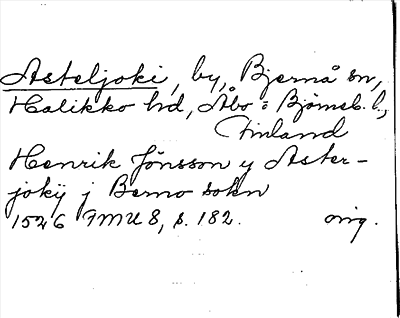 Asteljoki, by, Bjernå sn,
Halikko hd, Åbo o Björneb. l.,
Finland
Henrik Jönsson y Aster-
jokÿ j Berno sokn
1526 FMU 8, s. 182. orig.